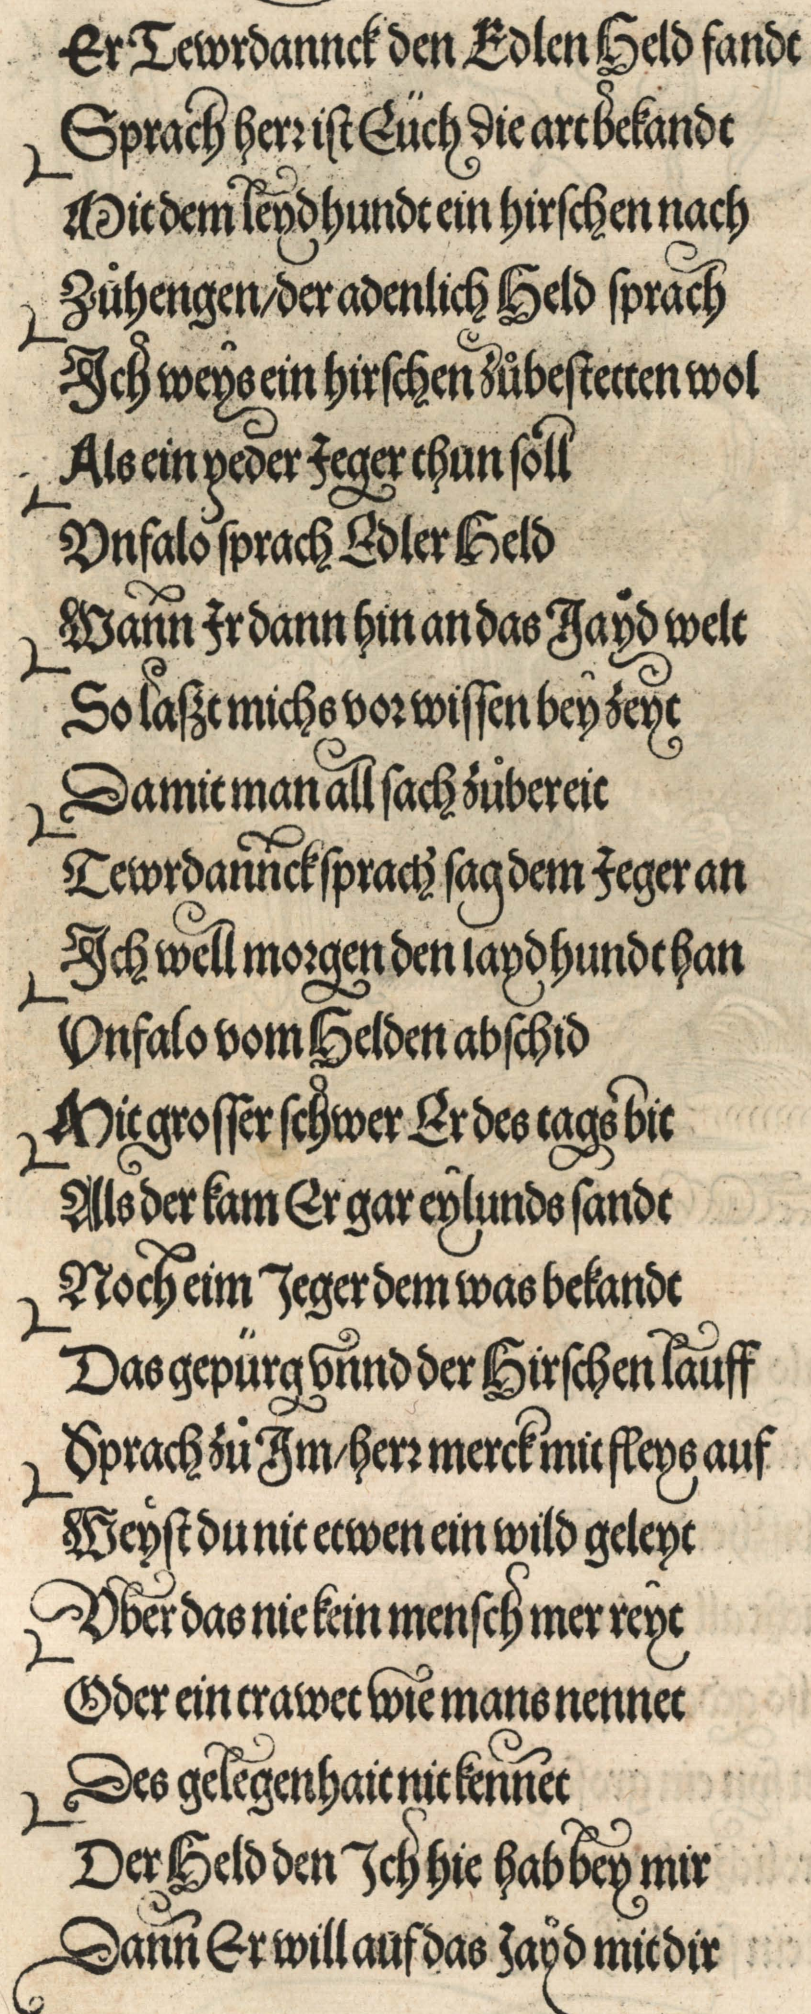 Er Tewrdannck den Edlen Held fandt
Sprach herr ist Eüch die art bekandt
Mit dem leydhundt ein hirschen nach
Zůhengen/der adenlich Held sprach
Ich weys ein hirschen zůbestetten wol
Als ein yeder Jeger thun söll
Vnfalo sprach Edler Held
Wann Ir dann hin an das Jayd welt
So laszt michs vor wissen bey zeyt
Damit man all sach zůbereit
Tewrdannck sprach sag dem Jeger an
Ich well morgen den laydhundt han
Vnfalo vom Helden abschid
Mit grosser schwer Er des tags bit
Als der kam Er gar eylunds sandt
Noch eim Jeger dem was bekandt
Das gepürg vnnd der Hirschen lauff
Sprach zů Im/herr merck mit fleys auf
Weyst du nit etwen ein wild geleyt
Vber das nie kein mensch mer reyt
Oder ein trawet wie mans nennet
Des gelegenhait nit kennet
Der Held den Ich hie hab bey mir
Dann Er will auf das Jayd mit dir